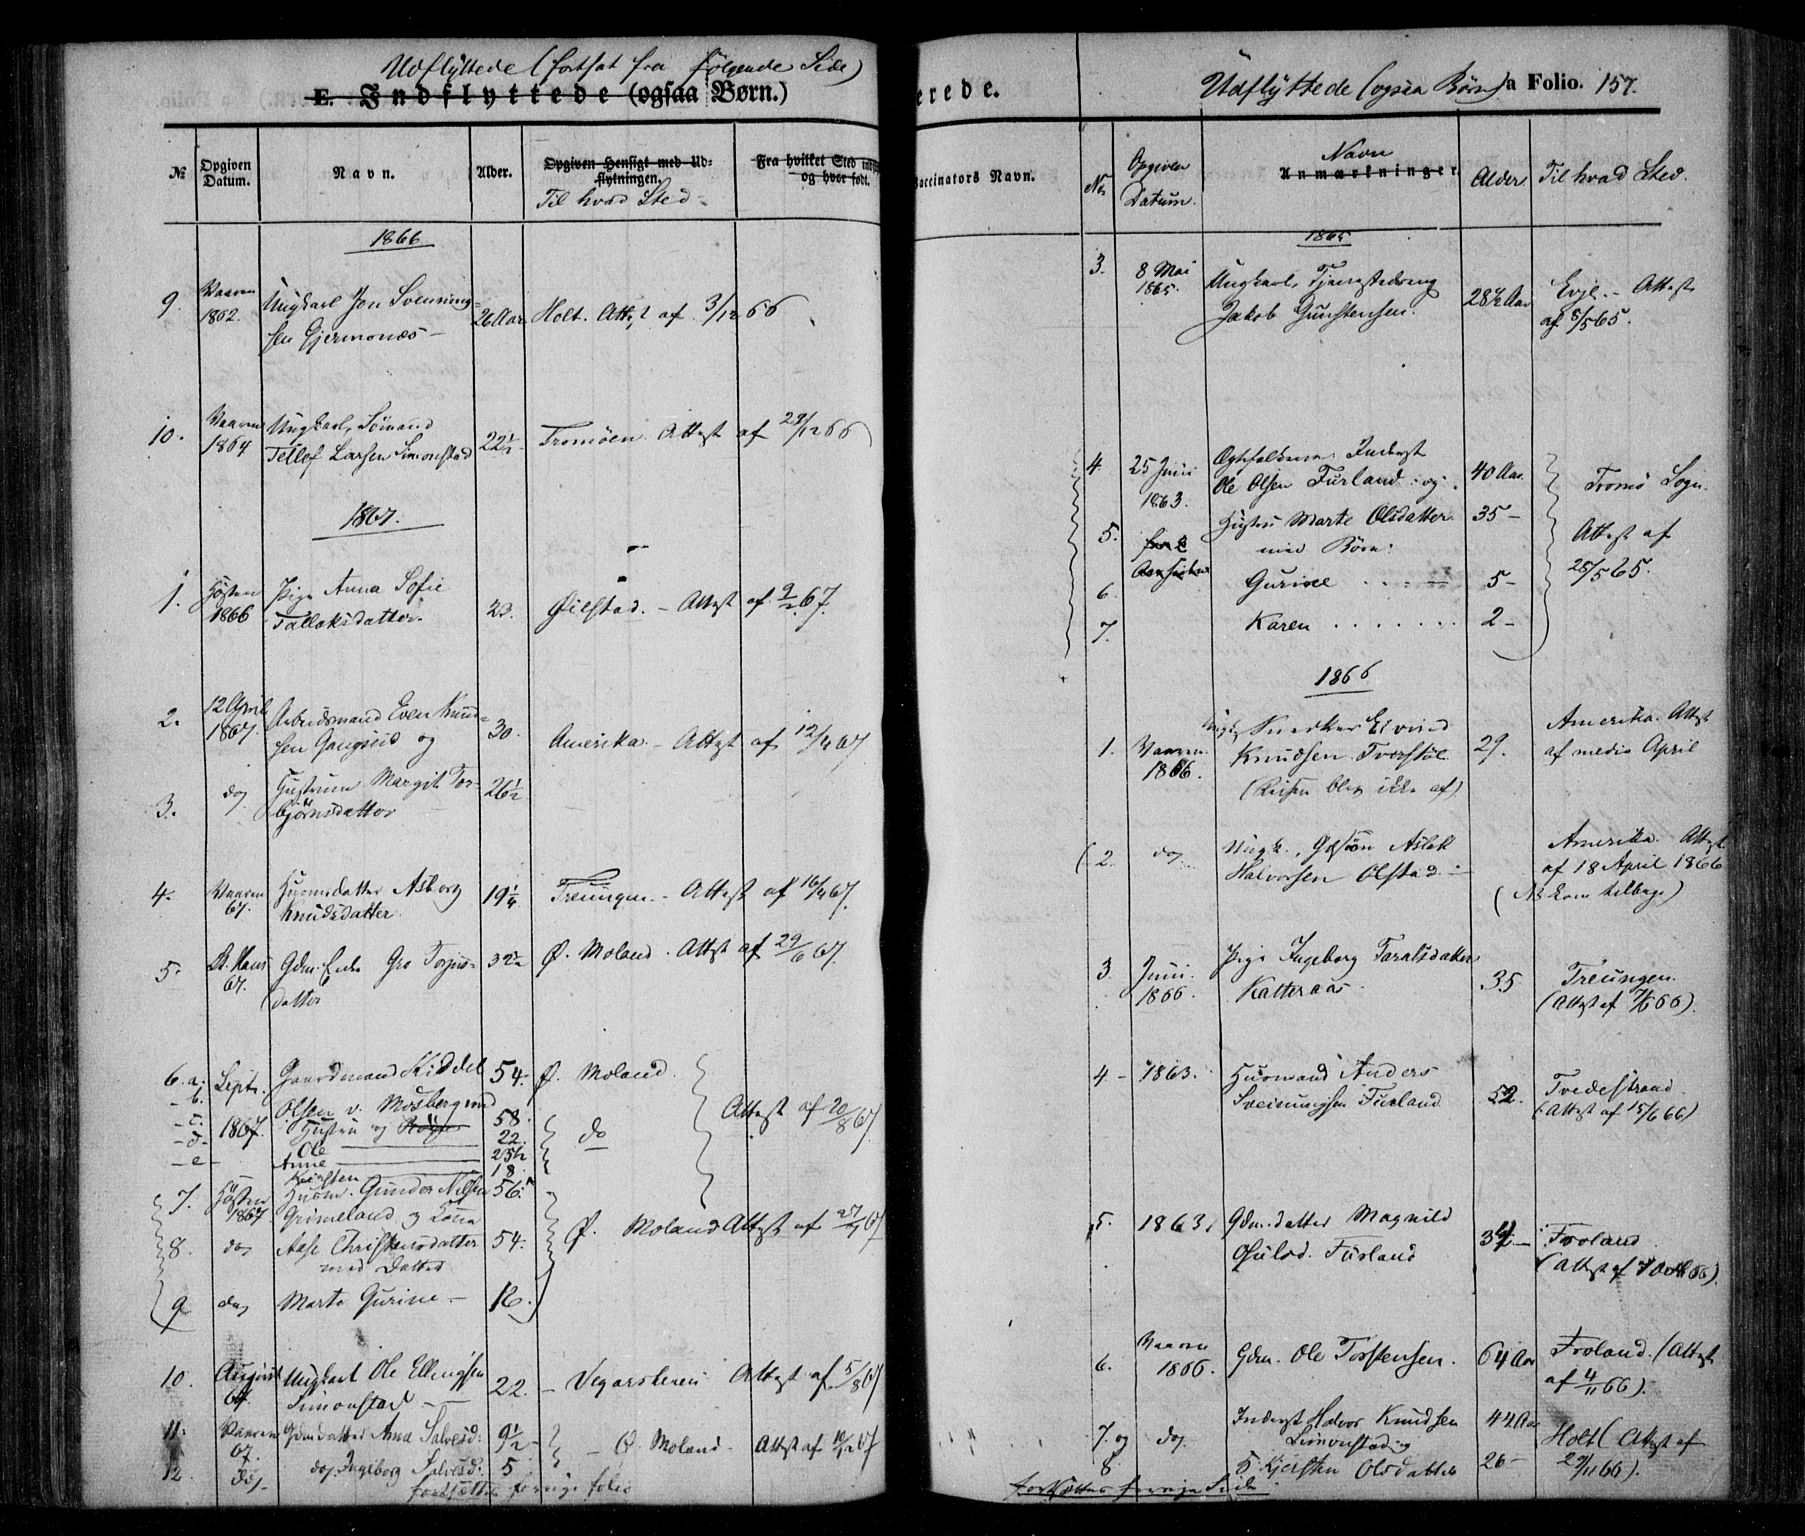 Udflyttede (fortsat fra følgende Side)
E. Indflyttede (ogsaa Børn.)
№
Opgiven Datum.
Navn.
Alder.
Opgiven Hensigt med Udflytningen.
Til hvad Sted
Fra hvilket Sted
og hvor født.
1866
9. Vaaren 1862. Ungkarl Jon Svenning- 26 Aar. Holt. Attest af 3/12 66
sen Gjermonæs
10. Vaaren 1864 Ungkarl, Sømand 22½ Tromöen. Attest af 29/12 66
Tellef Larsen Simonstad
1867.
1. Hösten 1866 Pige Anna Sofie 23. Øiestad. - Attest af 9/2 67.
Tallaksdatter.
2. 12 April 1867. Arbeidsmand Even Knud- 30. Amerika - Attest af 12/4 67
sen Gangseid og
3. do Hustru Margit Tor- 26½
björnsdatter
4. Vaaren 67. Huusmdatter Asborg 19¼ Treungen - Attest af 16/4 67.
Knudsdatter
5. St. Hans 67. Gdm. Enke Gro Terjus- 32½ Ø. Moland. Attest af 29/6 67.
datter
6. a. Septr. 1867. Gaardmand Kiddel 54. Ø. Moland.
- b. Olsen v. Mosberg med 58. Attest af 20/8 67
- c. Hustru og 22. do
- d. Ole 23½
- e Anne 18
Kirsten
7. Hösten 1867 Huusm. Gunder Nilsen 56. Ø. Moland Attest af 27/9 67
Grimeland og Kona
8. do Aase Christensdatter 54.
med Datter
9 do Marte Gurine - 12.
10. August 67 Ungkarl Ole Ellingsen 22. - Vegarsheien Attest af 5/8 67
Simonstad
11. Vaaren 67. Gdmdatter Anna Salvesd: 9½ - Ø. Moland. Attest af 10/12 67
12. do do Ingeborg Salvesd: 5
fortsættes forrige folio
erede.
Udflyttede (ogsaa Børn) a Folio. 157.
Vaccinators Navn.
No
Opgiven Datum.
Navn
Anmærkninger.
Alder.
Til hvad Sted.
1865
3. 8 Mai 1865. Ungkarl, Tjenestedreng 28½ Aar Evje. - Attest
Jakob Gunstensen. af 8/5 65.
4 25 Juni 1863. Ægtefolkene: Inderst 40 Aar. Tromö Sogn.
Ole Olsen Furland: og.
5. Hustru Marte Olsdatter 35 - Attest af
med Børn: 28/5 65.
6. Gurine . . . . 5 -
7. Karen . . . . . . 2 -
1866
1. Vaaren 1866. Ungk. Snedker Eivind 29. Amerika. Attest
Knudsen Tverstöl af medio April
(Reisen blev ikke af)
(2. do Ungk., Gdssön Aslak Amerika. Attest
Halvorsen Olstad - af 18 April 1866
(NB kom tilbage)
3. Juni 1866. Pige Ingeborg Taralsdatter 35 Treungen.
Katteraas. (Attest af 7/6 66).
4 - 1863. Huusmand Anders 52. Tvedestrand
Sveinungsen Furland (Attest af 15/6 66)
5. 1863. Gdm.datter Magnild 34 - Froland
Gulsd. Furland (Attest af 7 Octb 66).
6. Vaaren 1866. Gdm. Ole Torstensen. 64 Aar Froland. (Attest
af 4/11 66).
7. og do. Inderst Halvor Knudsen 44 Aar Holt (Attest af
Simonstad og 29/11 66).
8 Kjersten Olsdatter 26 -
fortsættes forrige Side